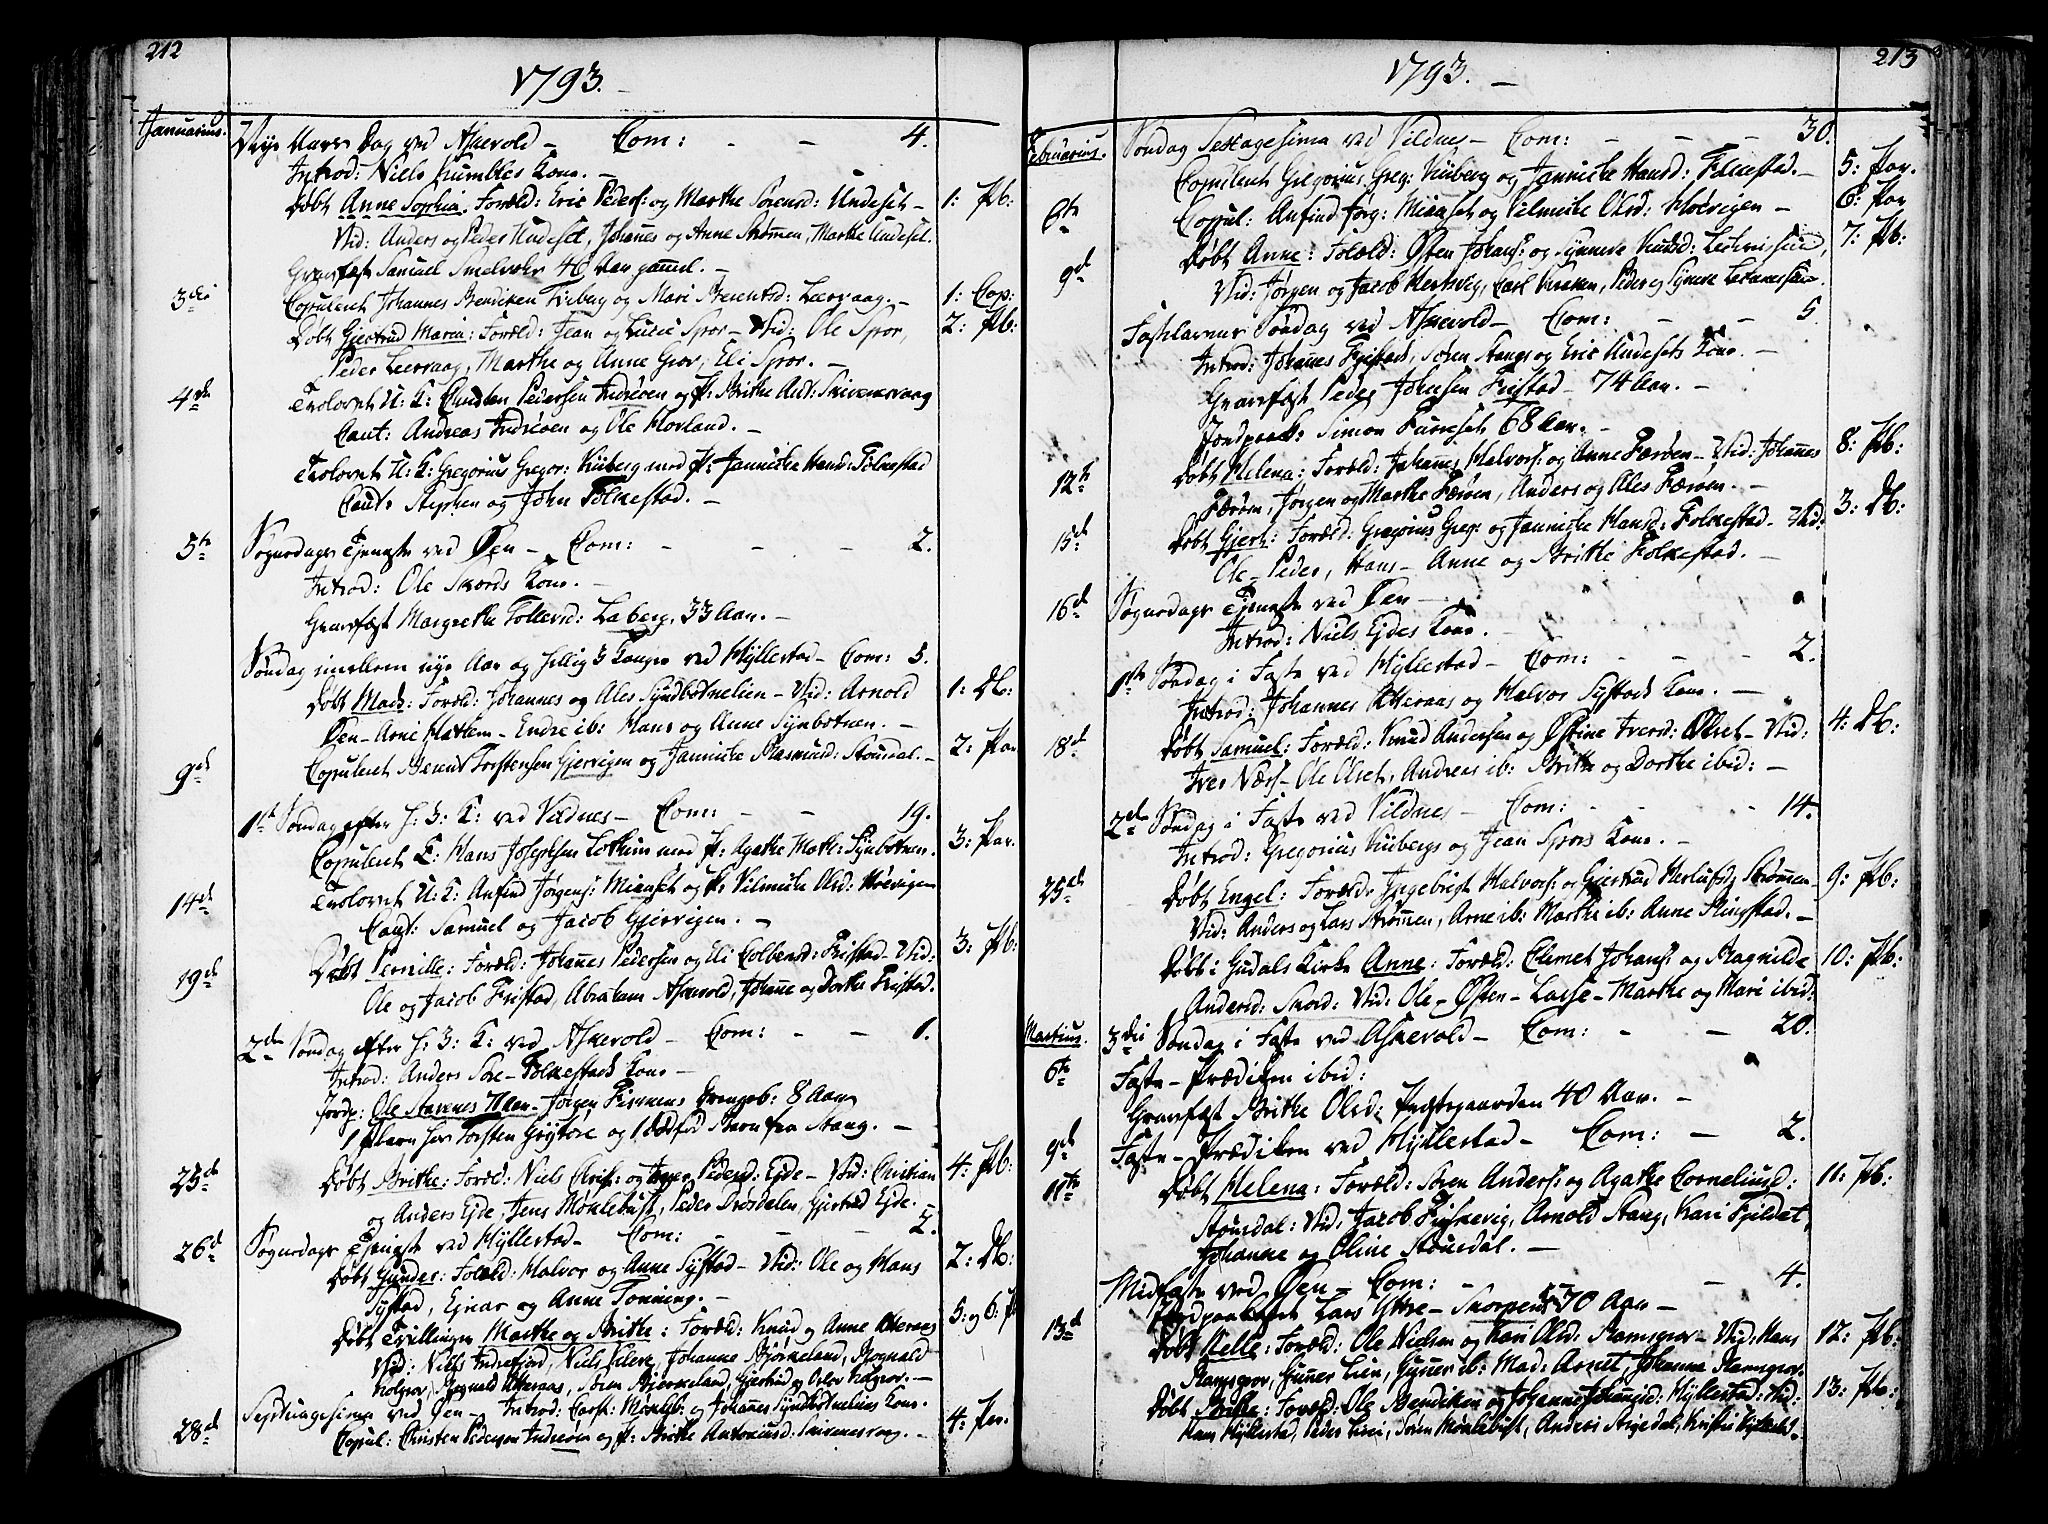 212
1793.
Januarius.
Nye Aars Dag ved Askevold - Com: - - 4.
Introd: Niels Kumbles Kone. -
Døbt Anne Sophia. Foræld: Eric Peders: og Marthe Sørensd: Undeset - 1: Pb:
Vid: Anders og Peder Undeset, Johanes og Anne Strømen, Marthe Undeset.
Gravfæst Samuel Smelvehr 46 Aar gamel. -
3die Copuleret Johannes Bendixen Friberg og Mari Berentsd: Leervaag. - 1: Cop:
Døbt Giertrud Maria: Foræld: Jean og Lucie Spor - Vid: Ole Spor, 2: Pb:
Peder Leervaag, Marthe og Anne Grov, Eli Spor. -
4de Trolovet U: K: Christen Pedersen Indreøen og P: Brithe Ant: Skivenesvaag
Caut: Andreas Indreøen og Ole Hovland. -
Trolovet U: K: Gregorius Gregor: Kuiberg med P: Janniche Hansd: Folkestad
Caut: Stephen og John Folkestad. -
5te Søgnedags Tjeneste ved Øen - Com: - - - 2.
Introd: Ole Skords Kone. -
Gravfæst Margrethe Tollevsd: Laberg. 33 Aar. -
Søndag imellem nye Aar og hellig 3 Konger ved Hyllestad - Com: 5.
Døbt Mads: Foræld: Johannes og Ales Syndbotnelien - Vid: Arnold 1: Db:
Øen - Arne Hatlem - Endre ib: Hans og Anne Synbotnen. -
9de Copuleret Berent Torstensen Gjervigen og Janniche Rasmusd: Storudal. - 2: Par
1ste Søndag efter H: 3: K: ved Vildnes - Com: - - 19.
Copuleret E: Hans Josephsen Lothim med P: Agathe Math: Synbotnen. 3: Par.
14de Trolovet U: K: Anfind Jørgens: Mianset og P: Vilmiche Olsd: Høevigen
Caut: Samuel og Jacob Gjervigen. -
19de Døbt Pernille: Foræld: Johanes Pedersen og Eli Colbensd: Fristad - Vid: 3: Pb:
Ole og Jacob Fristad, Abraham Askevold, Johane og Dorthe Fristad.
2den Søndag efter H: 3: K: ved Askevold - Com: - - 1.
Introd: Anders Sæ - Folkestads Kone -
Jordp: Ole Stavenes Maar - Jørgen Fismens Drengeb: 8 Aar
1 Barn for Torsten Grytøre og 1 Dødfød Barn fra Stang. -
25de Døbt Brithe: Foræld: Niels Chris: og Inger Pedersd: Eyde - Vid: Christian 4: Pb:
og Anders Eyde, Jens Møklebust, Peder Drøsdalen, Gjertrud Eyde.
26de Søgnedags Tjeneste ved Hyllestad - Com: - - - 2.
Døbt Gunder: Foræld: Halvor og Anne Systad - Vid: Ole og Hans 2: Db:
Systad, Ejnar og Anne Tonning. -
Døbt Tvillinger Marthe og Brithe: Foræld: Knud og Anne Otteraas 5: og 6: P
Vid: Niels Indrefjord, Niels Kleve, Johanne Bjørneland, Rognald
Kolgrov, Rognald Otteraas, Søren Bjørneland, Gjertrud og Oslov Kolgrov. -
Septuagesima ved Øen - Introd: Carst: Møklb: og Johanes Syndbotneliens Kone.
28de Copul: Christen Pedersen Indreøen og P: Brithe Antoniusd: Skivenesvaag. - 4: Par.
213
1793. -
Februarius.
Søndag Sexagesima ved Vildnes - Com: - - - 30.
Copuleret Gregorius Greg: Kuiberg og Janniche Hansd: Folkestad. - 5: Par.
6te Copul: Anfind Jørg: Mianset og Vilmiche Olsd: Høevigen - 6: Par
9de Døbt Anne: Foræld: Østen Johans: og Synneve Knudsd: 7: Pb:
Vid: Jørgen og Jacob Hertsvig, Carl Kraken, Peder og Synneve
Fastelavens Søndag ved Askevold - Com: - - 5
Introd: Johanes Fristads, Søren Stangs og Eric Undesets Koner. -
Gravfæst Peder Johnsen Fristad - 74 Aar. -
Jordpaak: Simon Furreset 68 Aar. -
12te Døbt Helena: Foræld: Johanes Halvors: og Anne Færøen - Vid: Johannes 8: Pb:
Færøen, Jørgen og Marthe Færøen, Anders og Ales Færøen. -
15de Døbt Gjert: Foræld: Gregorius Greg: og Janniche Hansd: Folkestad - Vid: 3: Db:
Ole - Peder, Hans - Anne og Brithe Folkestad. -
16de Søgnedags Tjeneste ved Øen -
Introd: Niels Eydes Kone. -
1ste Søndag i Faste ved Hyllestad - Com: - - - 2.
Introd: Johannes Otteraas og Halvor Systads Kone. -
18de Døbt Samuel: Foræld: Knud Andersen og Østine Iversd: Ølset - Vid: 4: Db:
Iver Næss - Ole Ølset, Andreas ib: Brithe og Dorthe ibid: -
2den Søndag i Faste ved Vildnes - Com: - - - 14.
Introd: Gregorius Kuibergs og Jean Spors Kone. -
25de Døbt Engel: Foræld: Ingebrigt Halvors: og Giertrud Herlufsd: Strømen - 9: Pb:
Vid: Anders og Lars Strømen, Arne ib: Marthe ib: Anne Ringstad. -
Døbt i Gudals Kirke Anne: Foræld: Clemet Johans: og Ragnilde 10: Pb:
Andersd: Skord: Vid: Ole - Østen - Lasse - Marthe og Mari ibid:
Martius. 3die Søndag i Faste ved Askevold - Com: - - 20.
6te Faste - Prædiken ibid:
Gravfæst Brithe Olsd: Præstegaarden 40 Aar. -
9de Faste - Prædiken ved Hyllestad - Com: - 2.
11te Døbt Helena: Foræld: Søren Anders: og Agathe Corneliusd: 11: Pb:
Storudal: Vid: Jacob Fiskevig, Arnold Stang, Kari Fjeldet,
Johanne og Oline Storudal. -
Midfaste ved Øen - Com: - - 4.
Jordpaakastet Lars Yttre - Skorpens 70 Aar -
13de Døbt Helle: Foræld: Ole Nielsen og Kari Olsd: Ramsgrov - Vid: Hans 12: Pb:
Ramsgrov, Gunner Lien, Gunner ib: Mad: Arnet, Johanne Ramsgrov.
Døbt Brithe: Foræld: Ole Bendixen og Johanne Johannesd: Hyllestad: Vid: 13: Pb:
Hans Hyllestad, Peder Lien, Søren Møklebust, Anders Risedal, Kristi Hyllestad.